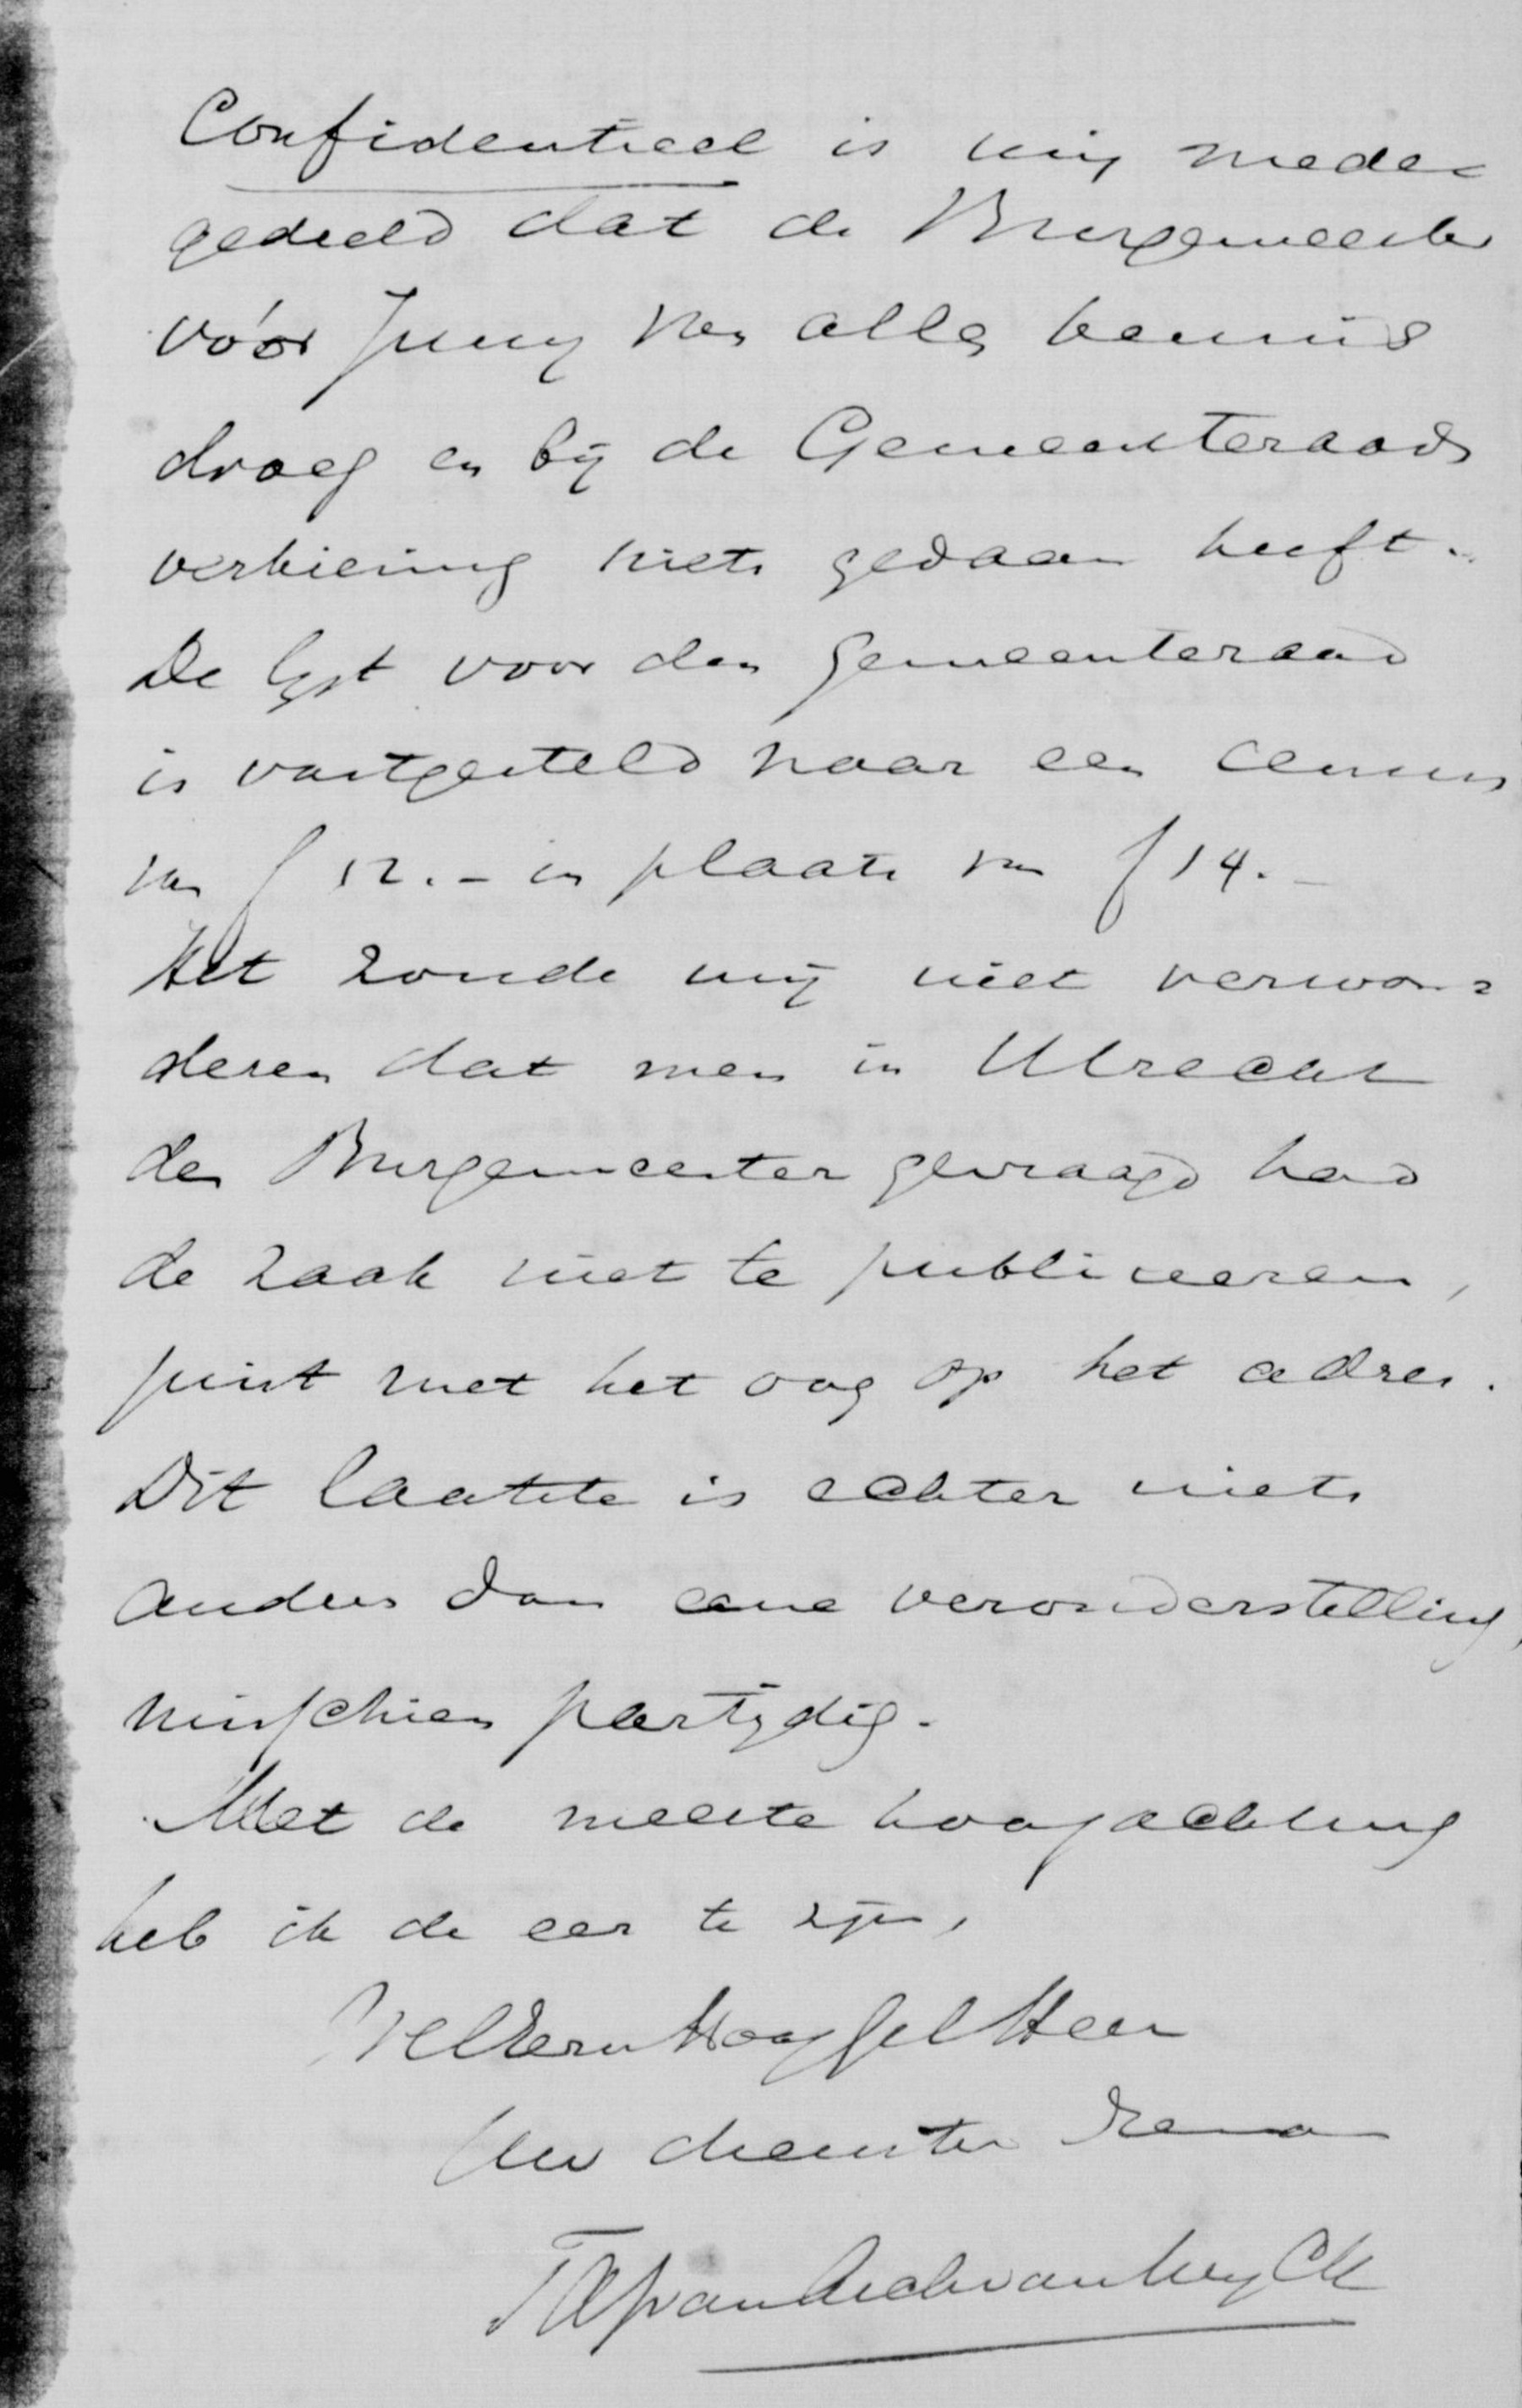 Confidentieel is mij mede=
gedeeld dat de Burgemeester
vóór Junij van alles kennis
droeg en bij de Gemeenteraads
verkiezing niets gedaan heeft.
De lijst voor den gemeenteraad
is vastgesteld naar een census
van f 12.- in plaats van f 14.-
Het zoude mij niet verwon=
deren dat men in Utrecht
den Burgemeester gevraagd had
de zaak niet te publiceeren,
juist met het oog op het adres.
Dit laatste is echter niets
anders dan eene veronderstelling,
misschien partijdig.
Met de meeste hoogachting
heb ik de eer te zijn,
WelEdern HoogGel Heer
Uw dienstw